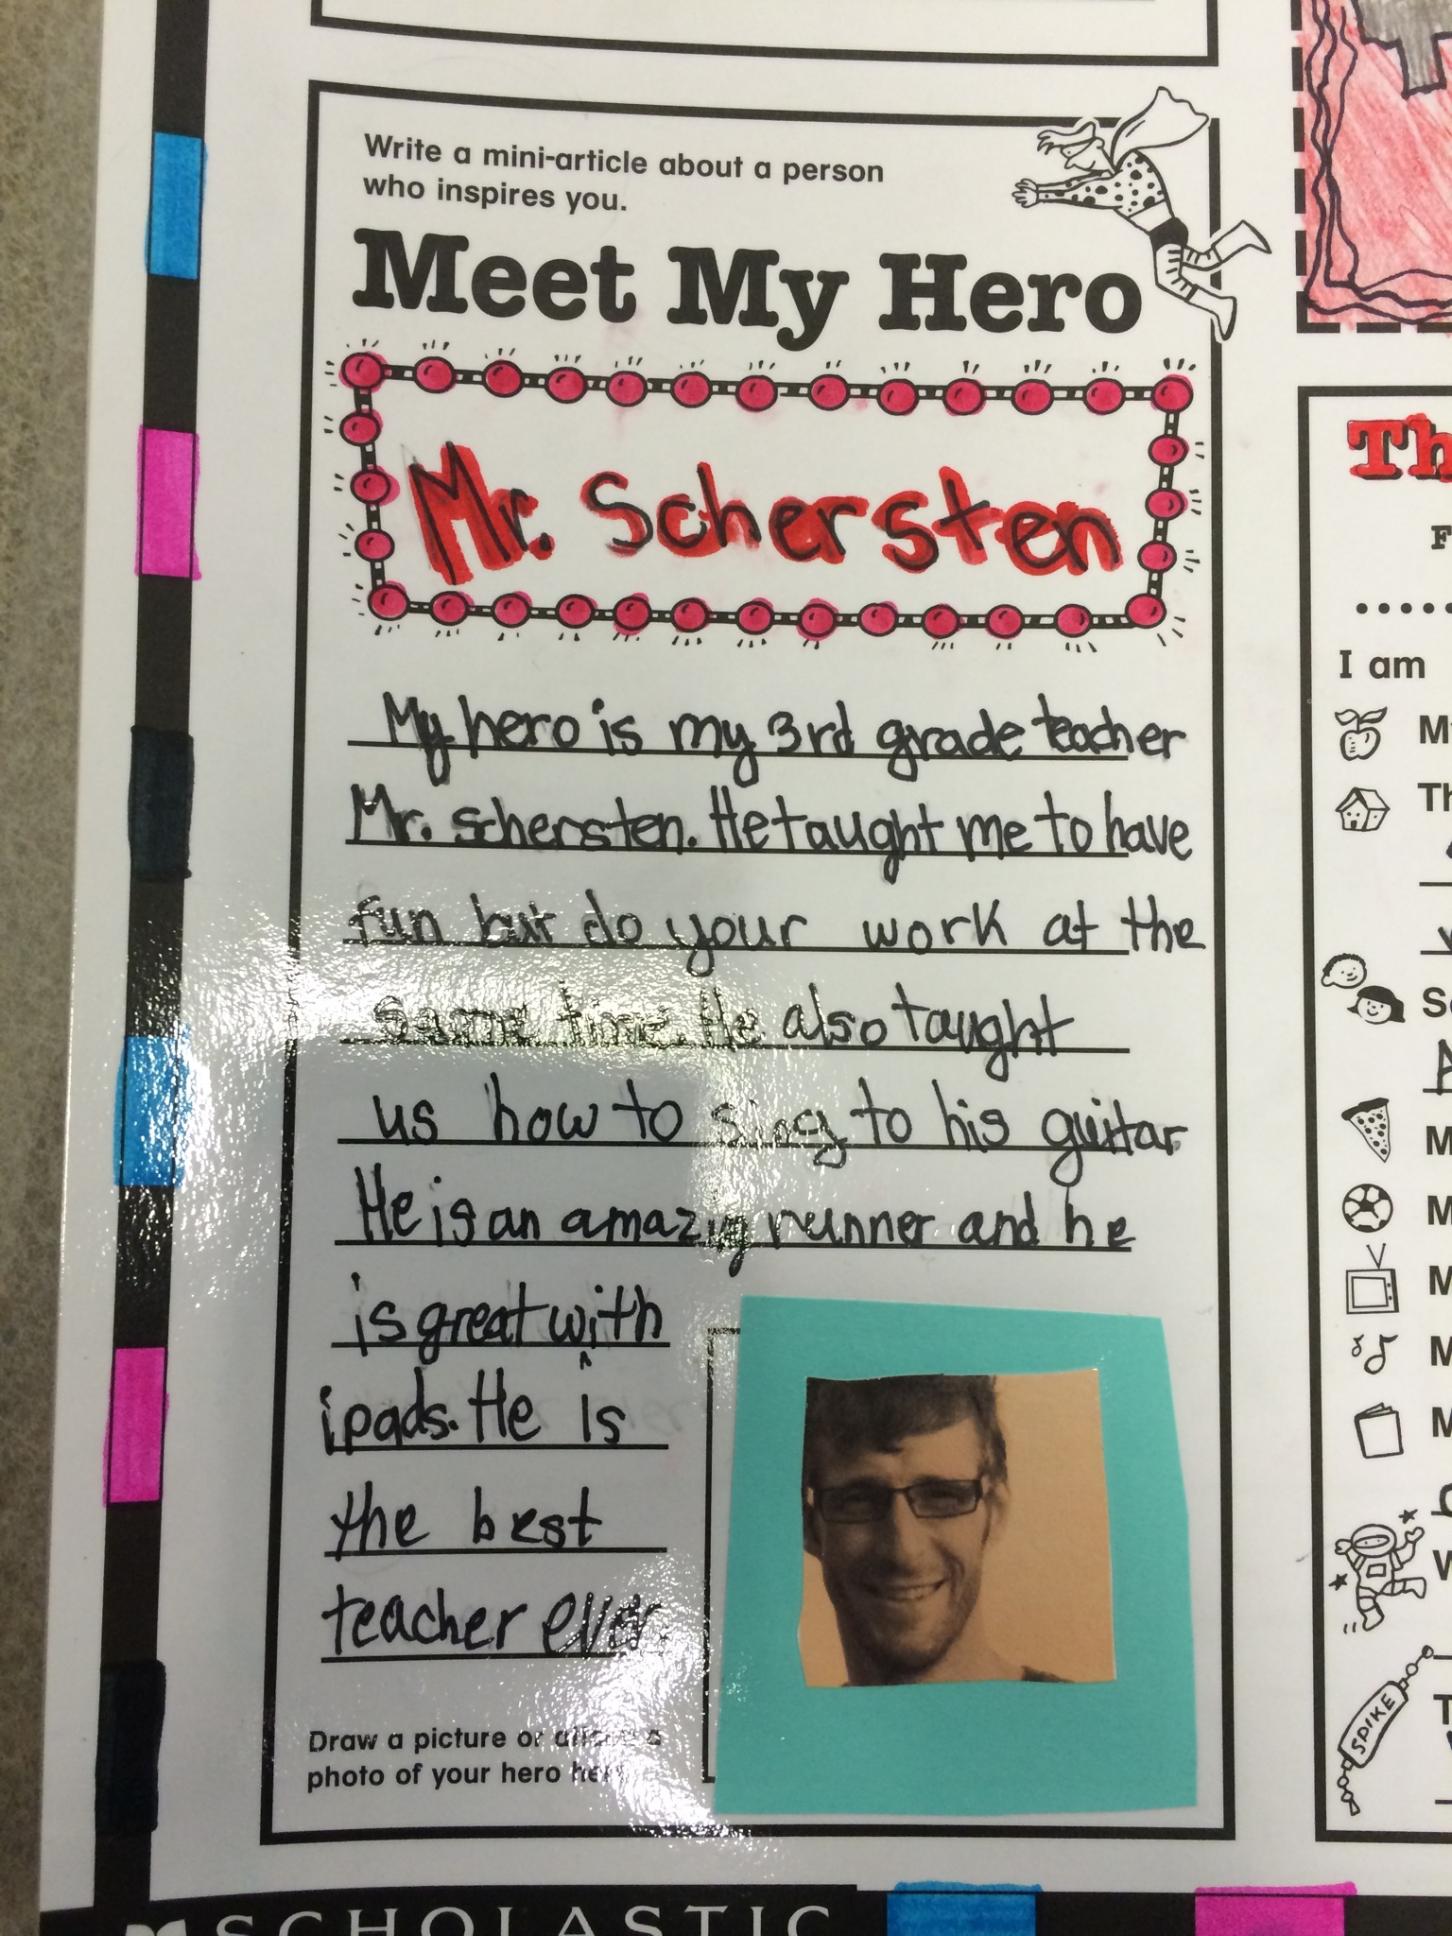 Write a mini-article about a person
who inspires you.
Meet My Hero
Mr. Schersten
My hero is my 3rd grade teacher
Mr. schersten. He taught me to have
fun but do your work at the
same time. He also taught
us how to sing to his guitar
He is an amazing runner and he
is great with
ipads. He is
the best
teacher ever.
Draw a picture or
photo of your hero
SCHOLASTIC
Th
F
I am
M
Th
S
M
M
M
M
M
W
SPIKE
T